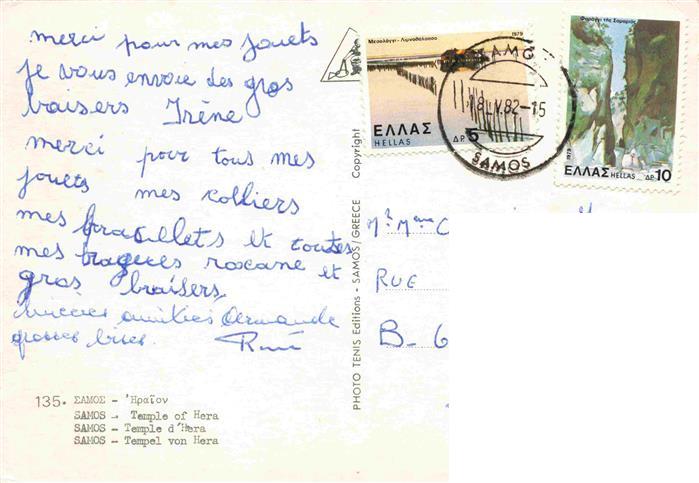 merci pour mes jouets
je vous envoie des gros
baisers Irène
merci pour tous mes
jouets mes colliers
mes bracellets et toutes
mes bagues roxane et
gros baisers
amitiés Armande
grosses bises. René
135. ΣΑΜΟΣ - Ἡραῖον
SAMOS - Temple of Hera
SAMOS - Temple d'Hera
SAMOS - Tempel von Hera
PHOTO TENIS Editions - SAMOS/GREECE Copyright
Μεσολόγγι - Λιμνοθάλασσα
1979
ΕΛΛΑΣ ΔΡ. 5
HELLAS
SAMOS
18. V. 82-15
Φαράγγι τῆς Σαμαριᾶς
1979
ΕΛΛΑΣ HELLAS ΔΡ. 10
Mr. Mme C
RUE
B-6